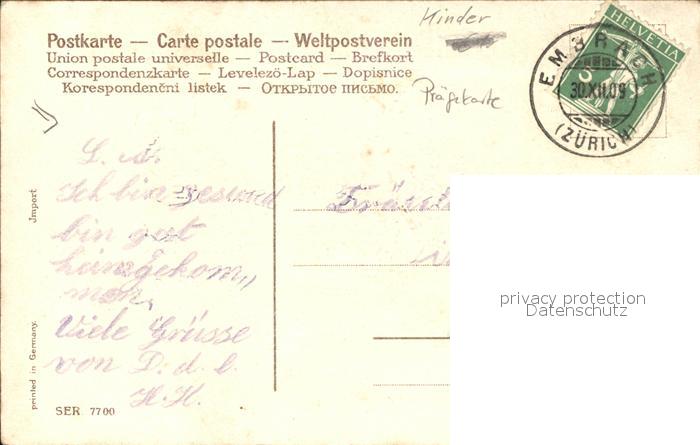 Hinder
Postkarte — Carte postale — Weltpostverein
Union postale universelle — Postcard — Brefkort
Correspondenzkarte — Levelezö-Lap — Dopisnice
Korespondenční listek — Открытое письмо.
Prägekarte
HELVETIA
EMBRACH
30.XII.09
(ZÜRICH)
L. A.
Ich bin gesund
bin gut
heimgekom„
men,
Viele Grüsse
von D. d. l.
H. H.
Fräule
in
privacy protection
Datenschutz
Jmport
printed in Germany.
SER 7700